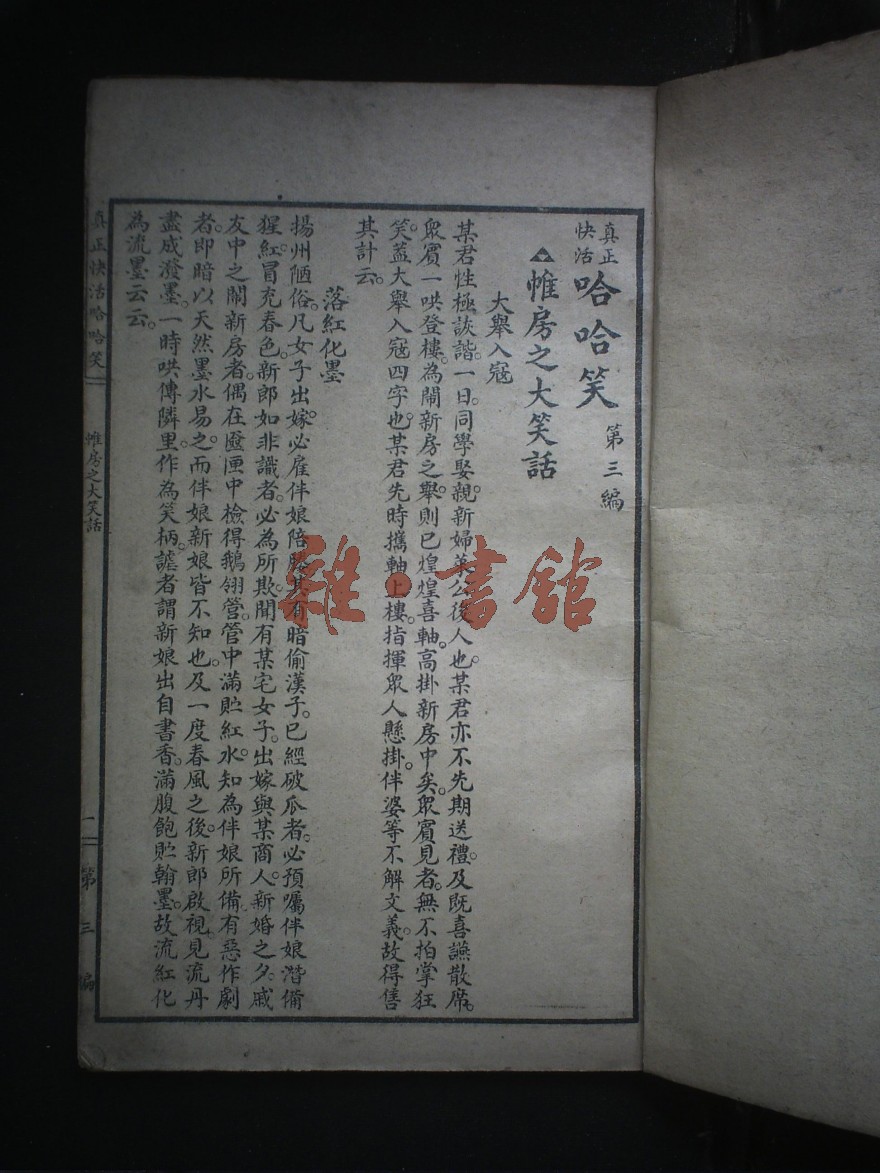 真正快活 哈哈笑 第三編
帷房之大笑話
大舉入寇
某君性極詼諧。一日。同學娶親。新婦美公後人也。某君亦不先期送禮。及既喜讌散席。
衆賓一哄登樓。為鬧新房之舉。則已煌煌喜軸。高掛新房中矣。衆賓見者。無不拍掌狂
笑。蓋大舉入寇四字也。某君先時攜軸上樓。指揮衆人懸掛。伴婆等不解文義。故得售
其計云。
落紅化墨
揚州陋俗。凡女子出嫁。必雇伴娘陪 其有暗偷漢子。已經破瓜者。必預囑伴娘潛備
猩紅。冒充春色。新郎如非識者。必為所欺。聞有某宅女子。出嫁與某商人。新婚之夕。戚
友中之鬧新房者。偶在匳匣中檢得鵝翎管。管中滿貯紅水。知為伴娘所備。有惡作劇
者。即暗以天然墨水易之。而伴娘新娘皆不知也。及一度春風之後。新郎啟視。見流丹
盡成潑墨。一時哄傳隣里。作為笑柄。謔者謂新娘出自書香。滿腹飽貯翰墨。故流紅化
為流墨云云。
真正快活哈哈笑
帷房之大笑話
二
第三編
雜·書館